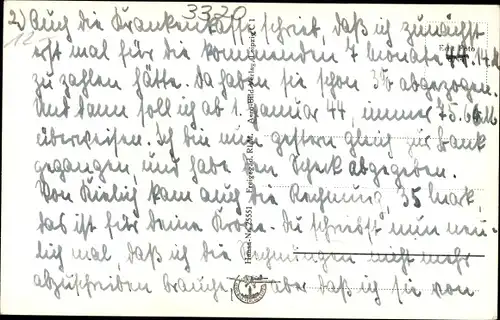 3320
2) Auch die Krankenkasse schrieb, daß ich zunächst
erst mal für die kommenden 7 Monate 14 M
zu zahlen hätte. Da haben sie schon 35 abgezogen.
Und dann soll ich ab 1. Januar 44, immer 75.
überweisen. Ich bin nun gestern gleich zur Bank
gegangen, und habe den Scheck abgegeben.
Von kam auch die Rechnung, 35 Mark,
das ist für deine Krone. Du schreibst nun neu-
lich mal, daß ich die Rechnungen nicht mehr
abzuschreiben brauche, aber daß ich sie von
Echt Foto